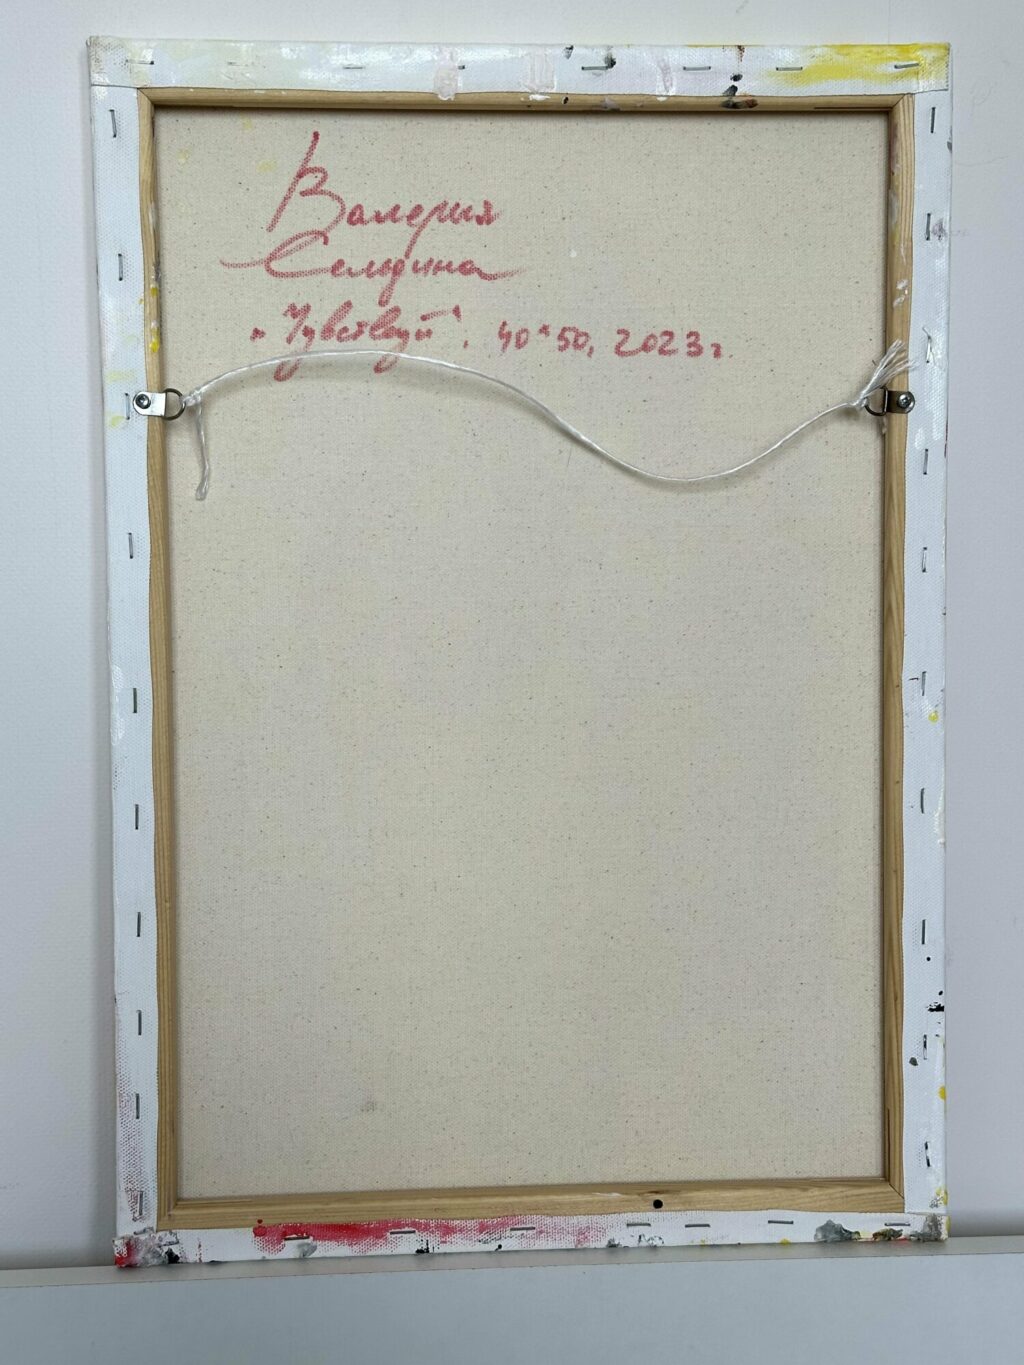 Валерия
Сельдина
„Чувствуй“, 40*50, 2023г.